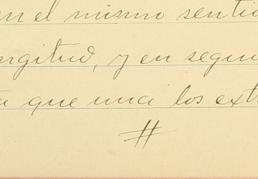 en el mismo sentid
ongitud, y en segui
a que una los extr
#